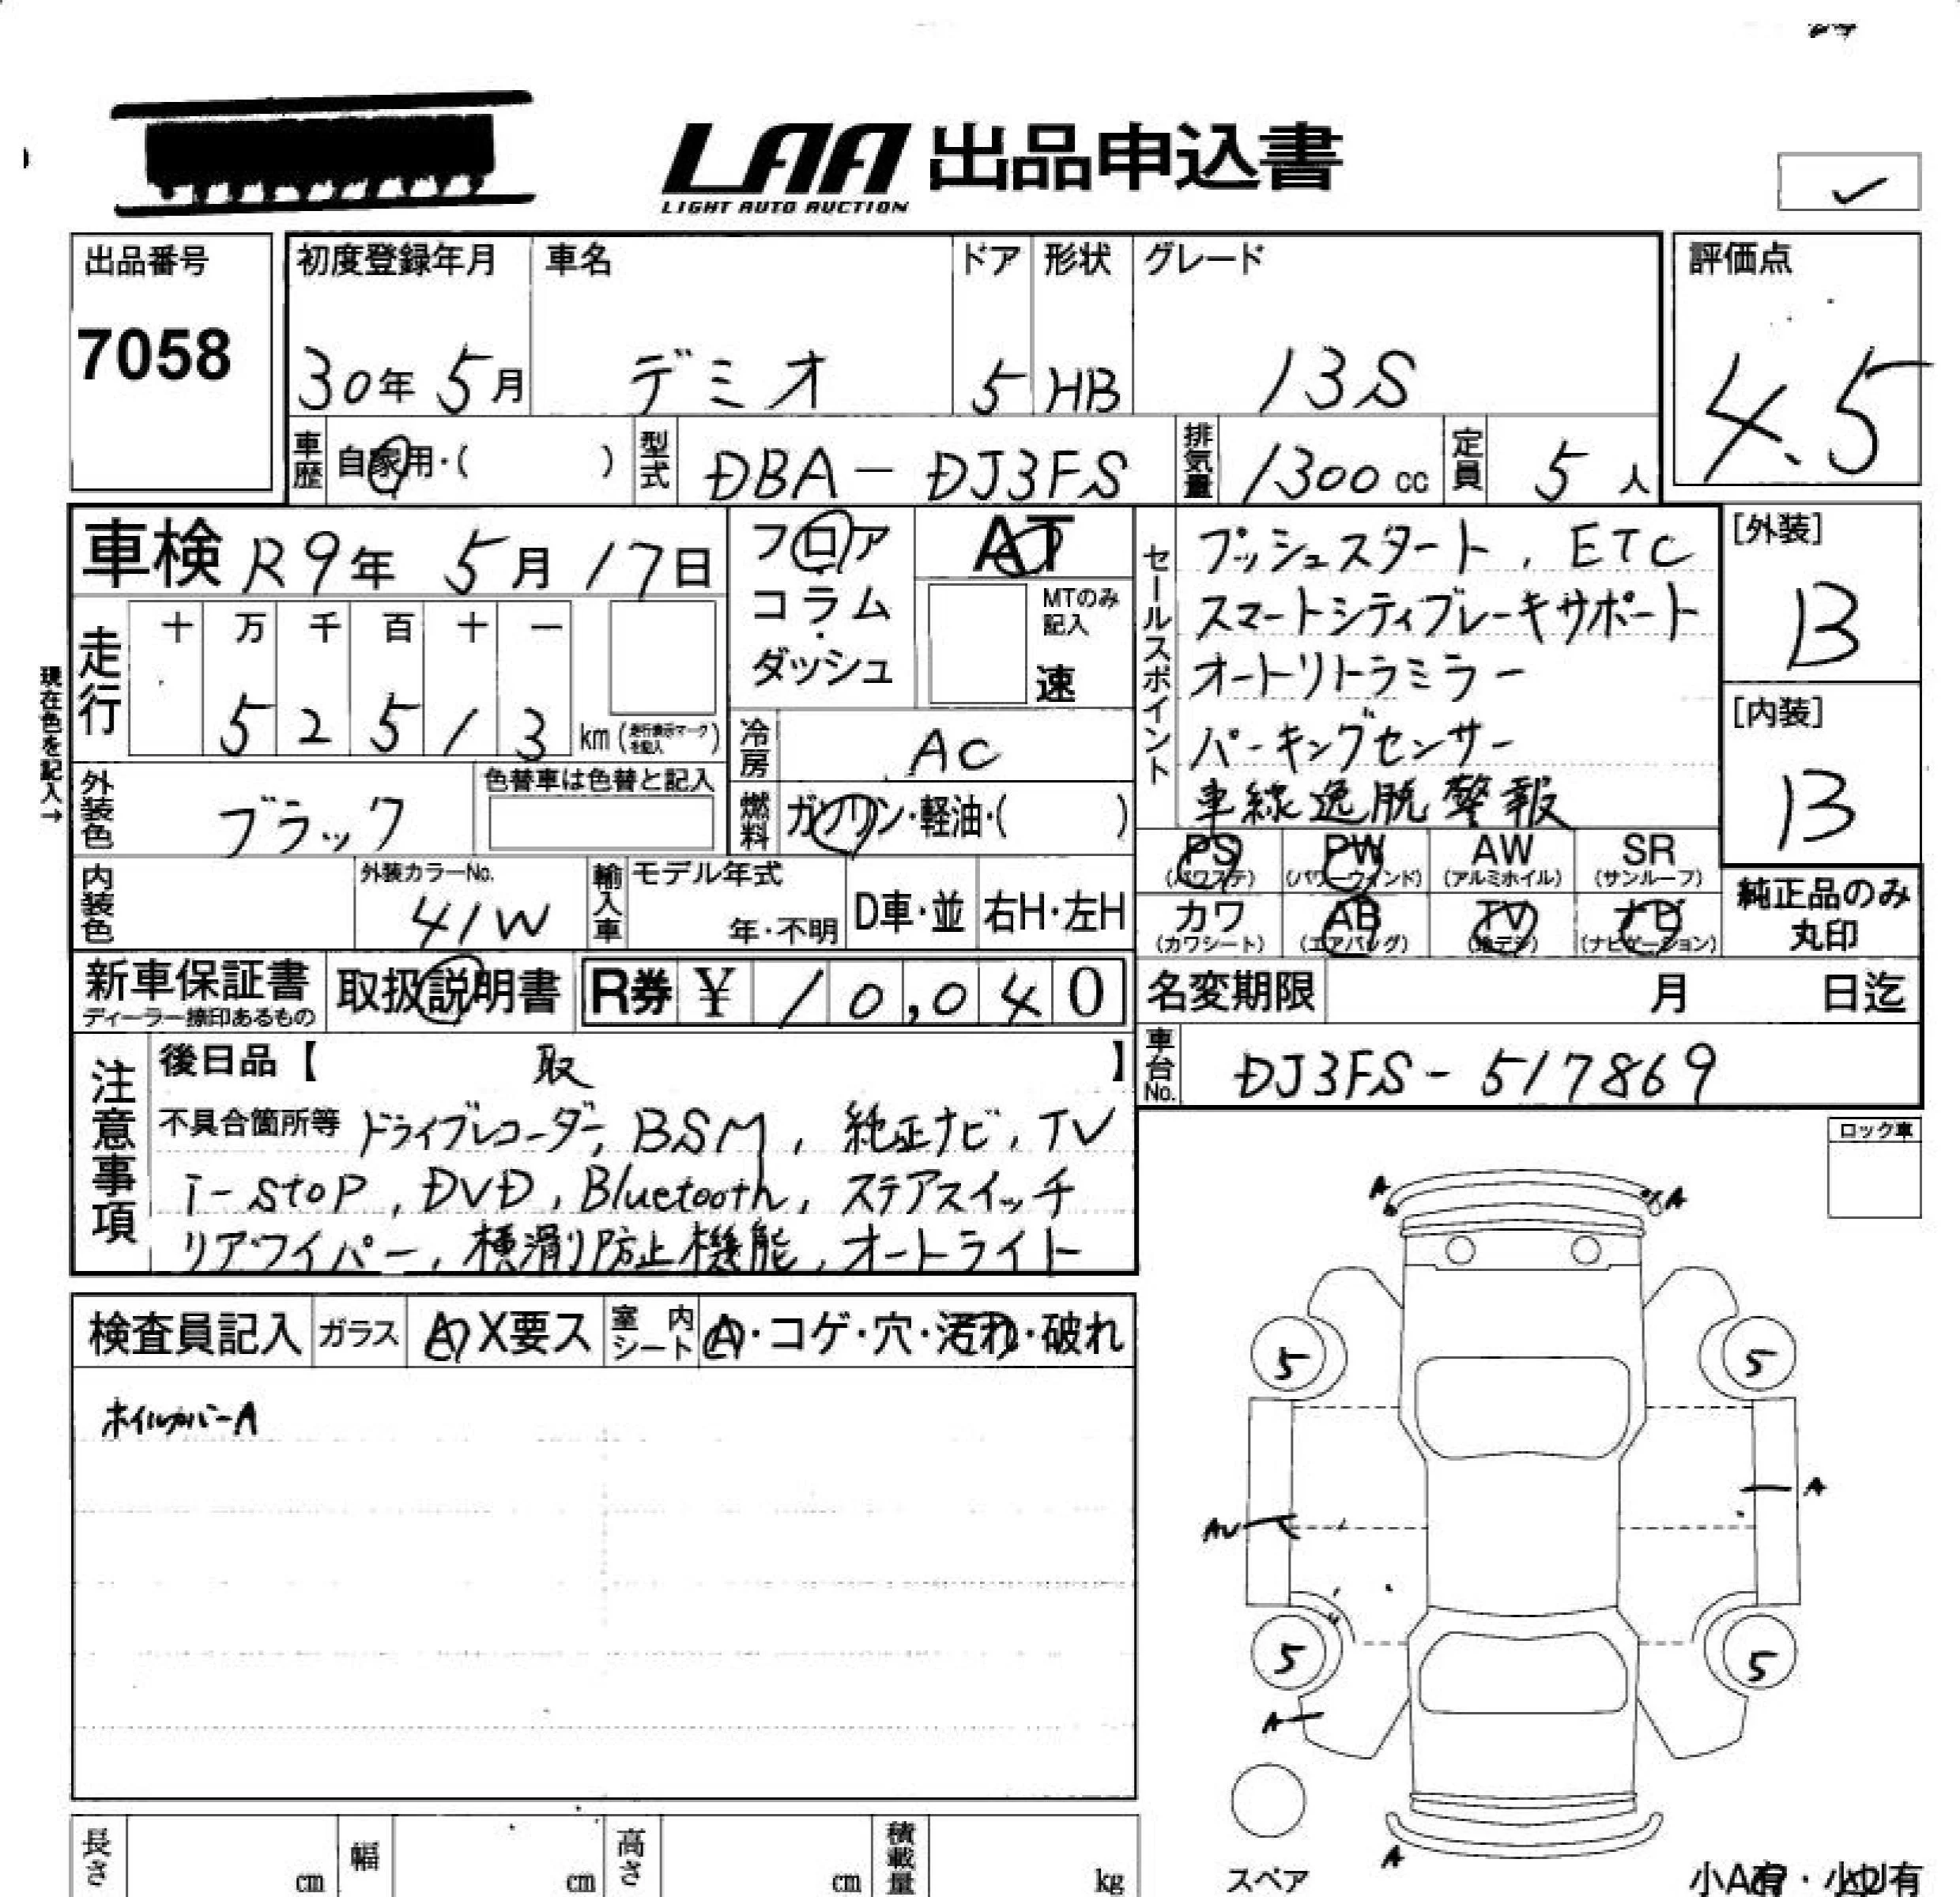 LAA 出品申込書
LIGHT AUTO AUCTION
出品番号
7058
初度登録年月 車名 ドア 形状 グレード
30年 5月 デミオ 5 HB 13S
評価点
4.5
車歴 自家用・( ) 型式 DBA-DJ3FS 排気量 1300cc 定員 5人
車検 R9年 5月 17日
フロア
コラム
ダッシュ
AT
MTのみ
記入
速
走行 十 万 千 百 十 一
5 2 5 1 3 km (走行表示マークを記入)
現在色を記入→
冷房 AC
燃料 ガソリン・軽油・( )
外装色 ブラック
色替車は色替と記入
内装色
外装カラーNo.
41W
輸入車 モデル年式
年・不明
D車・並 右H・左H
セールスポイント
プッシュスタート, ETC
スマートシティブレーキサポート
オートリトラミラー
パーキングセンサー
車線逸脱警報
[外装]
B
[内装]
B
PS PW AW SR
(パワステ) (パワーウィンド) (アルミホイル) (サンルーフ)
カワ AB TV ナビ
(カワシート) (エアバッグ) (地デジ) (ナビゲーション)
純正品のみ
丸印
新車保証書
ディーラー捺印あるもの
取扱説明書 R券 ¥ 10,040
名変期限 月 日迄
車台No. DJ3FS-517869
注意事項
後日品【 取 】
不具合箇所等 ドライブレコーダー, BSM, 純正ナビ, TV
i-stop, DVD, Bluetooth, ステアスイッチ
リアワイパー, 横滑り防止機能, オートライト
ロック車
検査員記入 ガラス A X要ス 室内シート A・コゲ・穴・汚れ・破れ
ホイルカバーA
A A
5 5
A
AU
5 5
A
A
スペア
小A有・小U有
長さ cm 幅 cm 高さ cm 積載量 kg